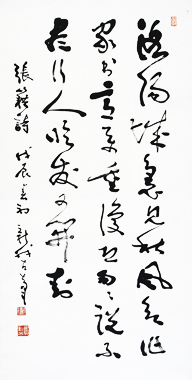 洛陽城裏見秋風欲作
家書意萬重復恐匆匆說不
盡行人臨發又開封
張籍詩 戊辰